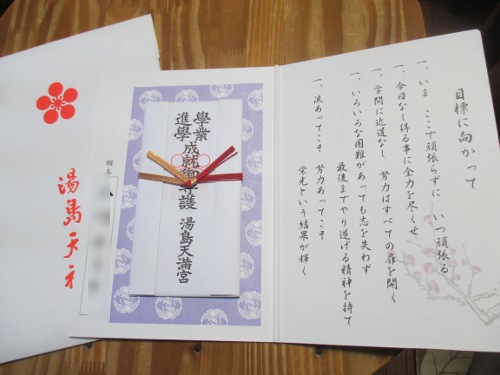 目標に向かって
一、いま ここで頑張らずに いつ頑張る
一、今日なし得る事に全力を尽くせ
一、学問に近道なし 努力はすべての扉を開く
一、いろいろな困難があっても志を失わず
最後までやり遂げる精神を持て
一、涙あってこそ 努力あってこそ
栄光という結果が輝く
學業
進學
成就御守護 湯島天満宮
湯島天